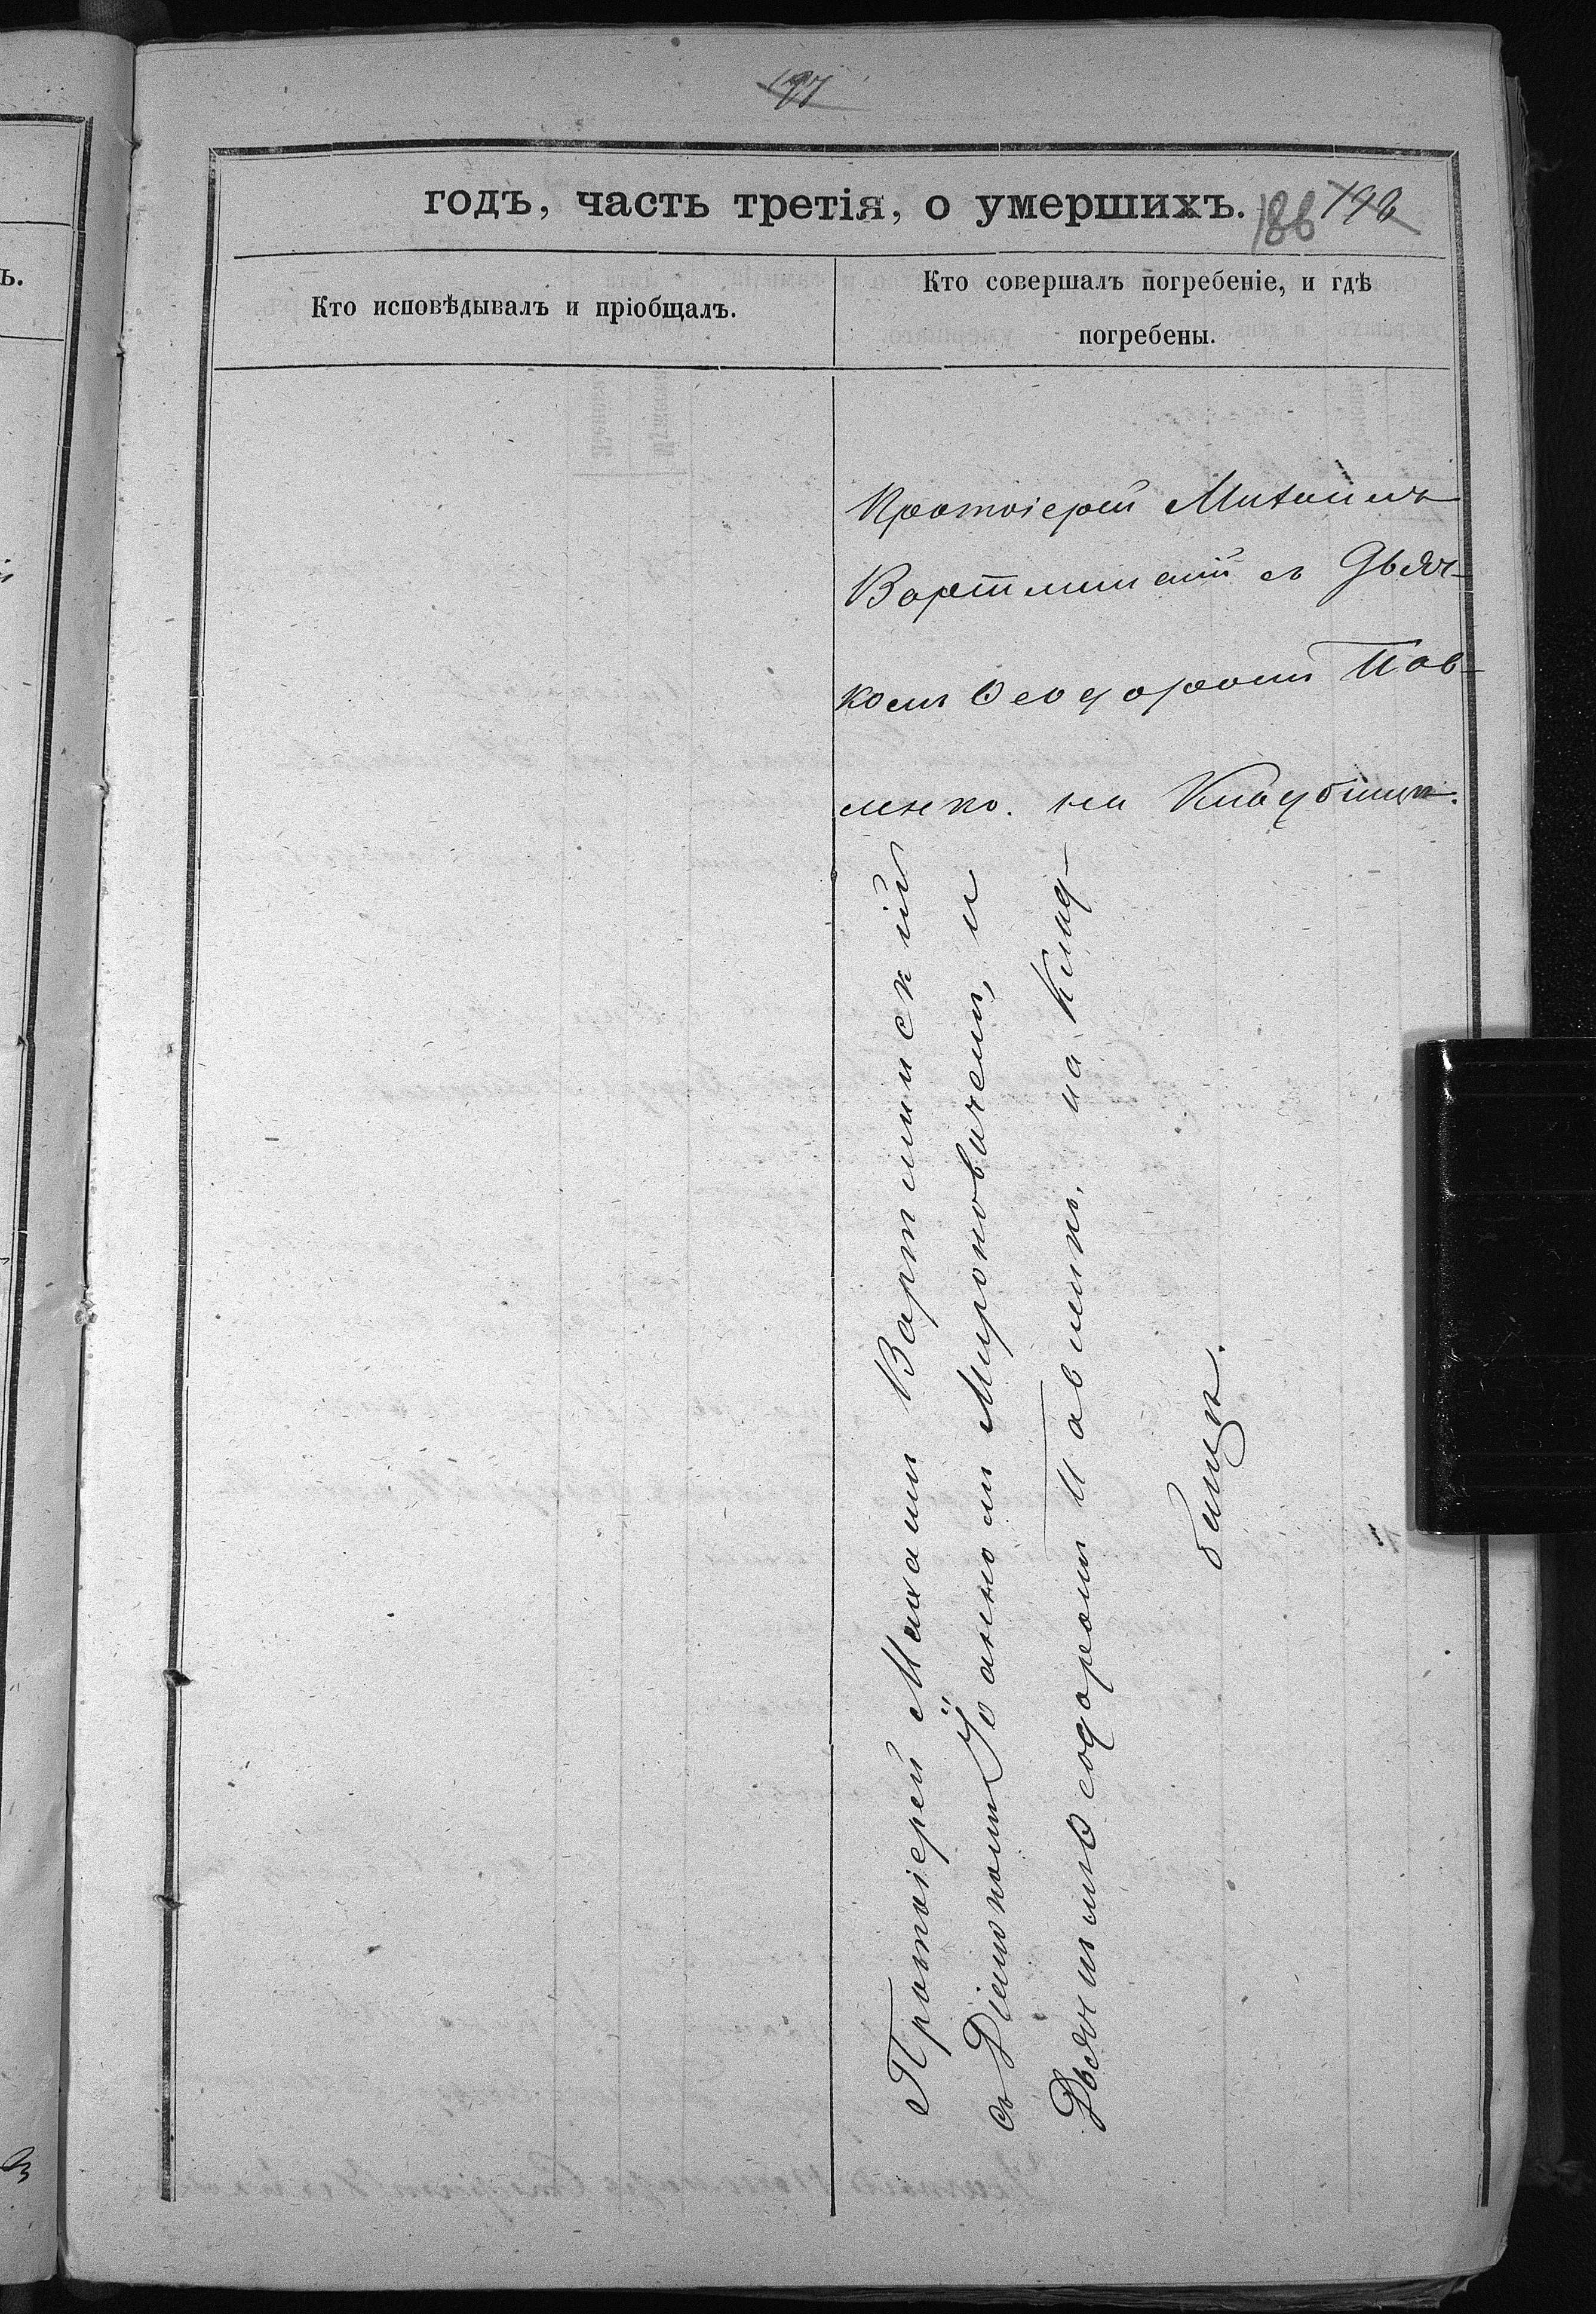 годъ, часть третія, о умершихъ. 186
Кто исповѣдывалъ и пріобщалъ.
Кто совершалъ погребеніе, и гдѣ
погребены.
Протоіерей Михаилъ
Вартминскій съ Дьяч-
комъ Ѳеодоромъ Пав-
ленко. на Кладбищѣ.
Протоіерей Михаилъ Вартминскій
съ Діакономъ Іоанномъ Мироновичемъ, и
Дьячкомъ Ѳеодоромъ Павленко. на Клад-
бищѣ.